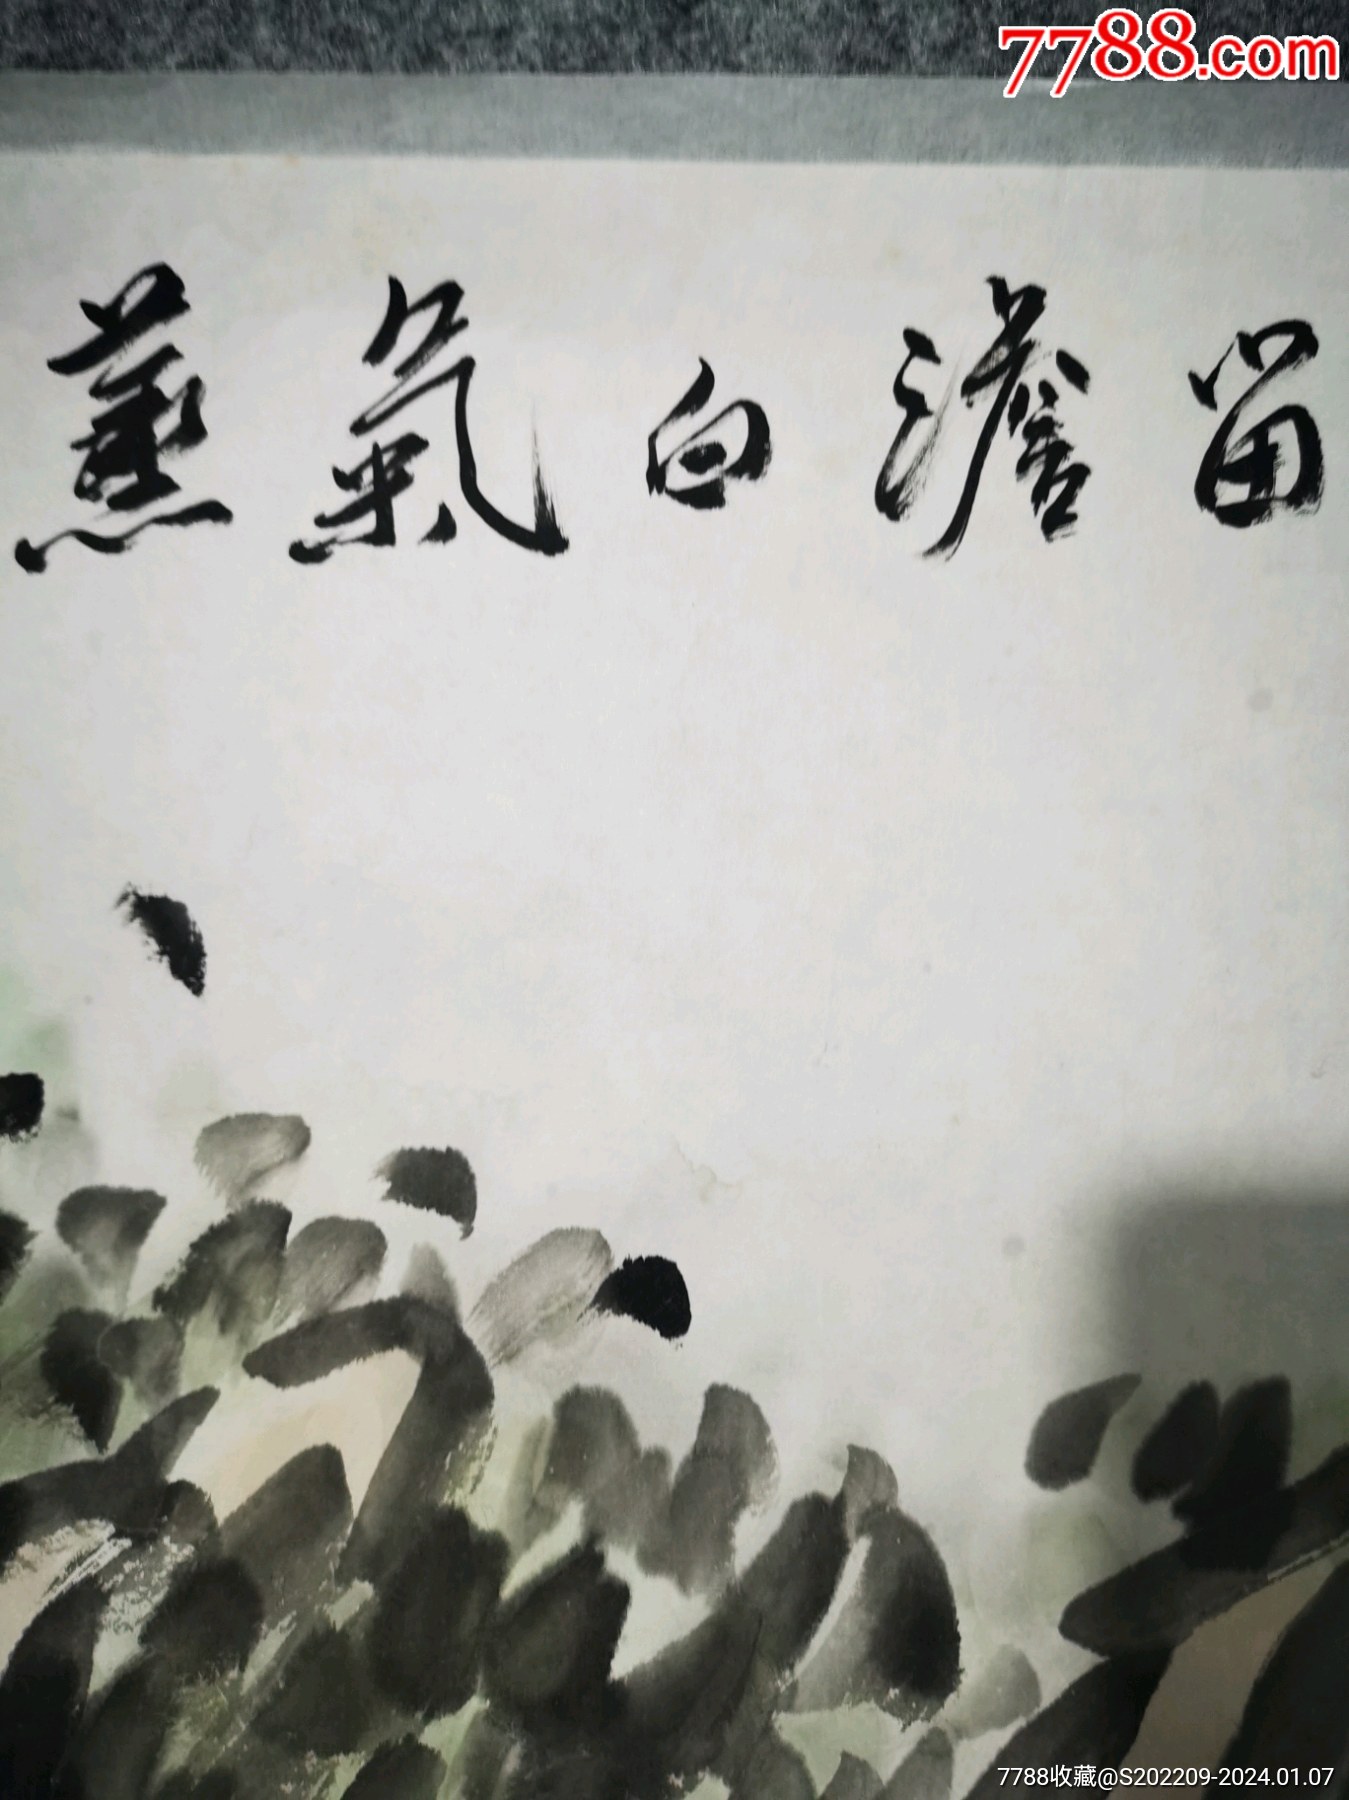 7788.com
留澹白氣蒸
7788收藏@S202209-2024.01.07